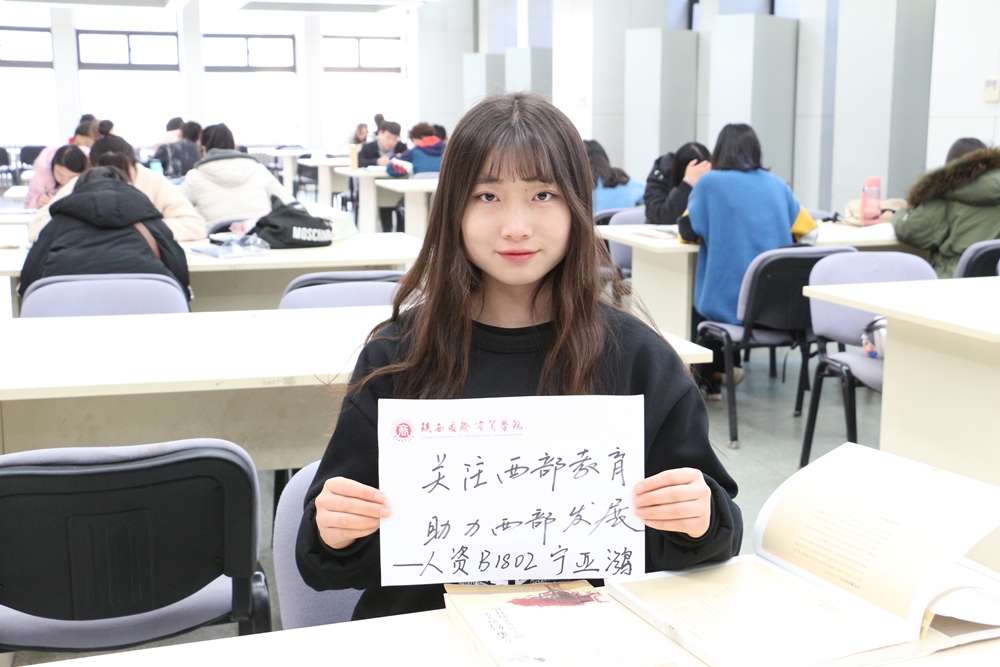 陕西国际商贸学院
关注西部教育
助力西部发展
—人资B1802 宁亚鸿
MOSCHINO